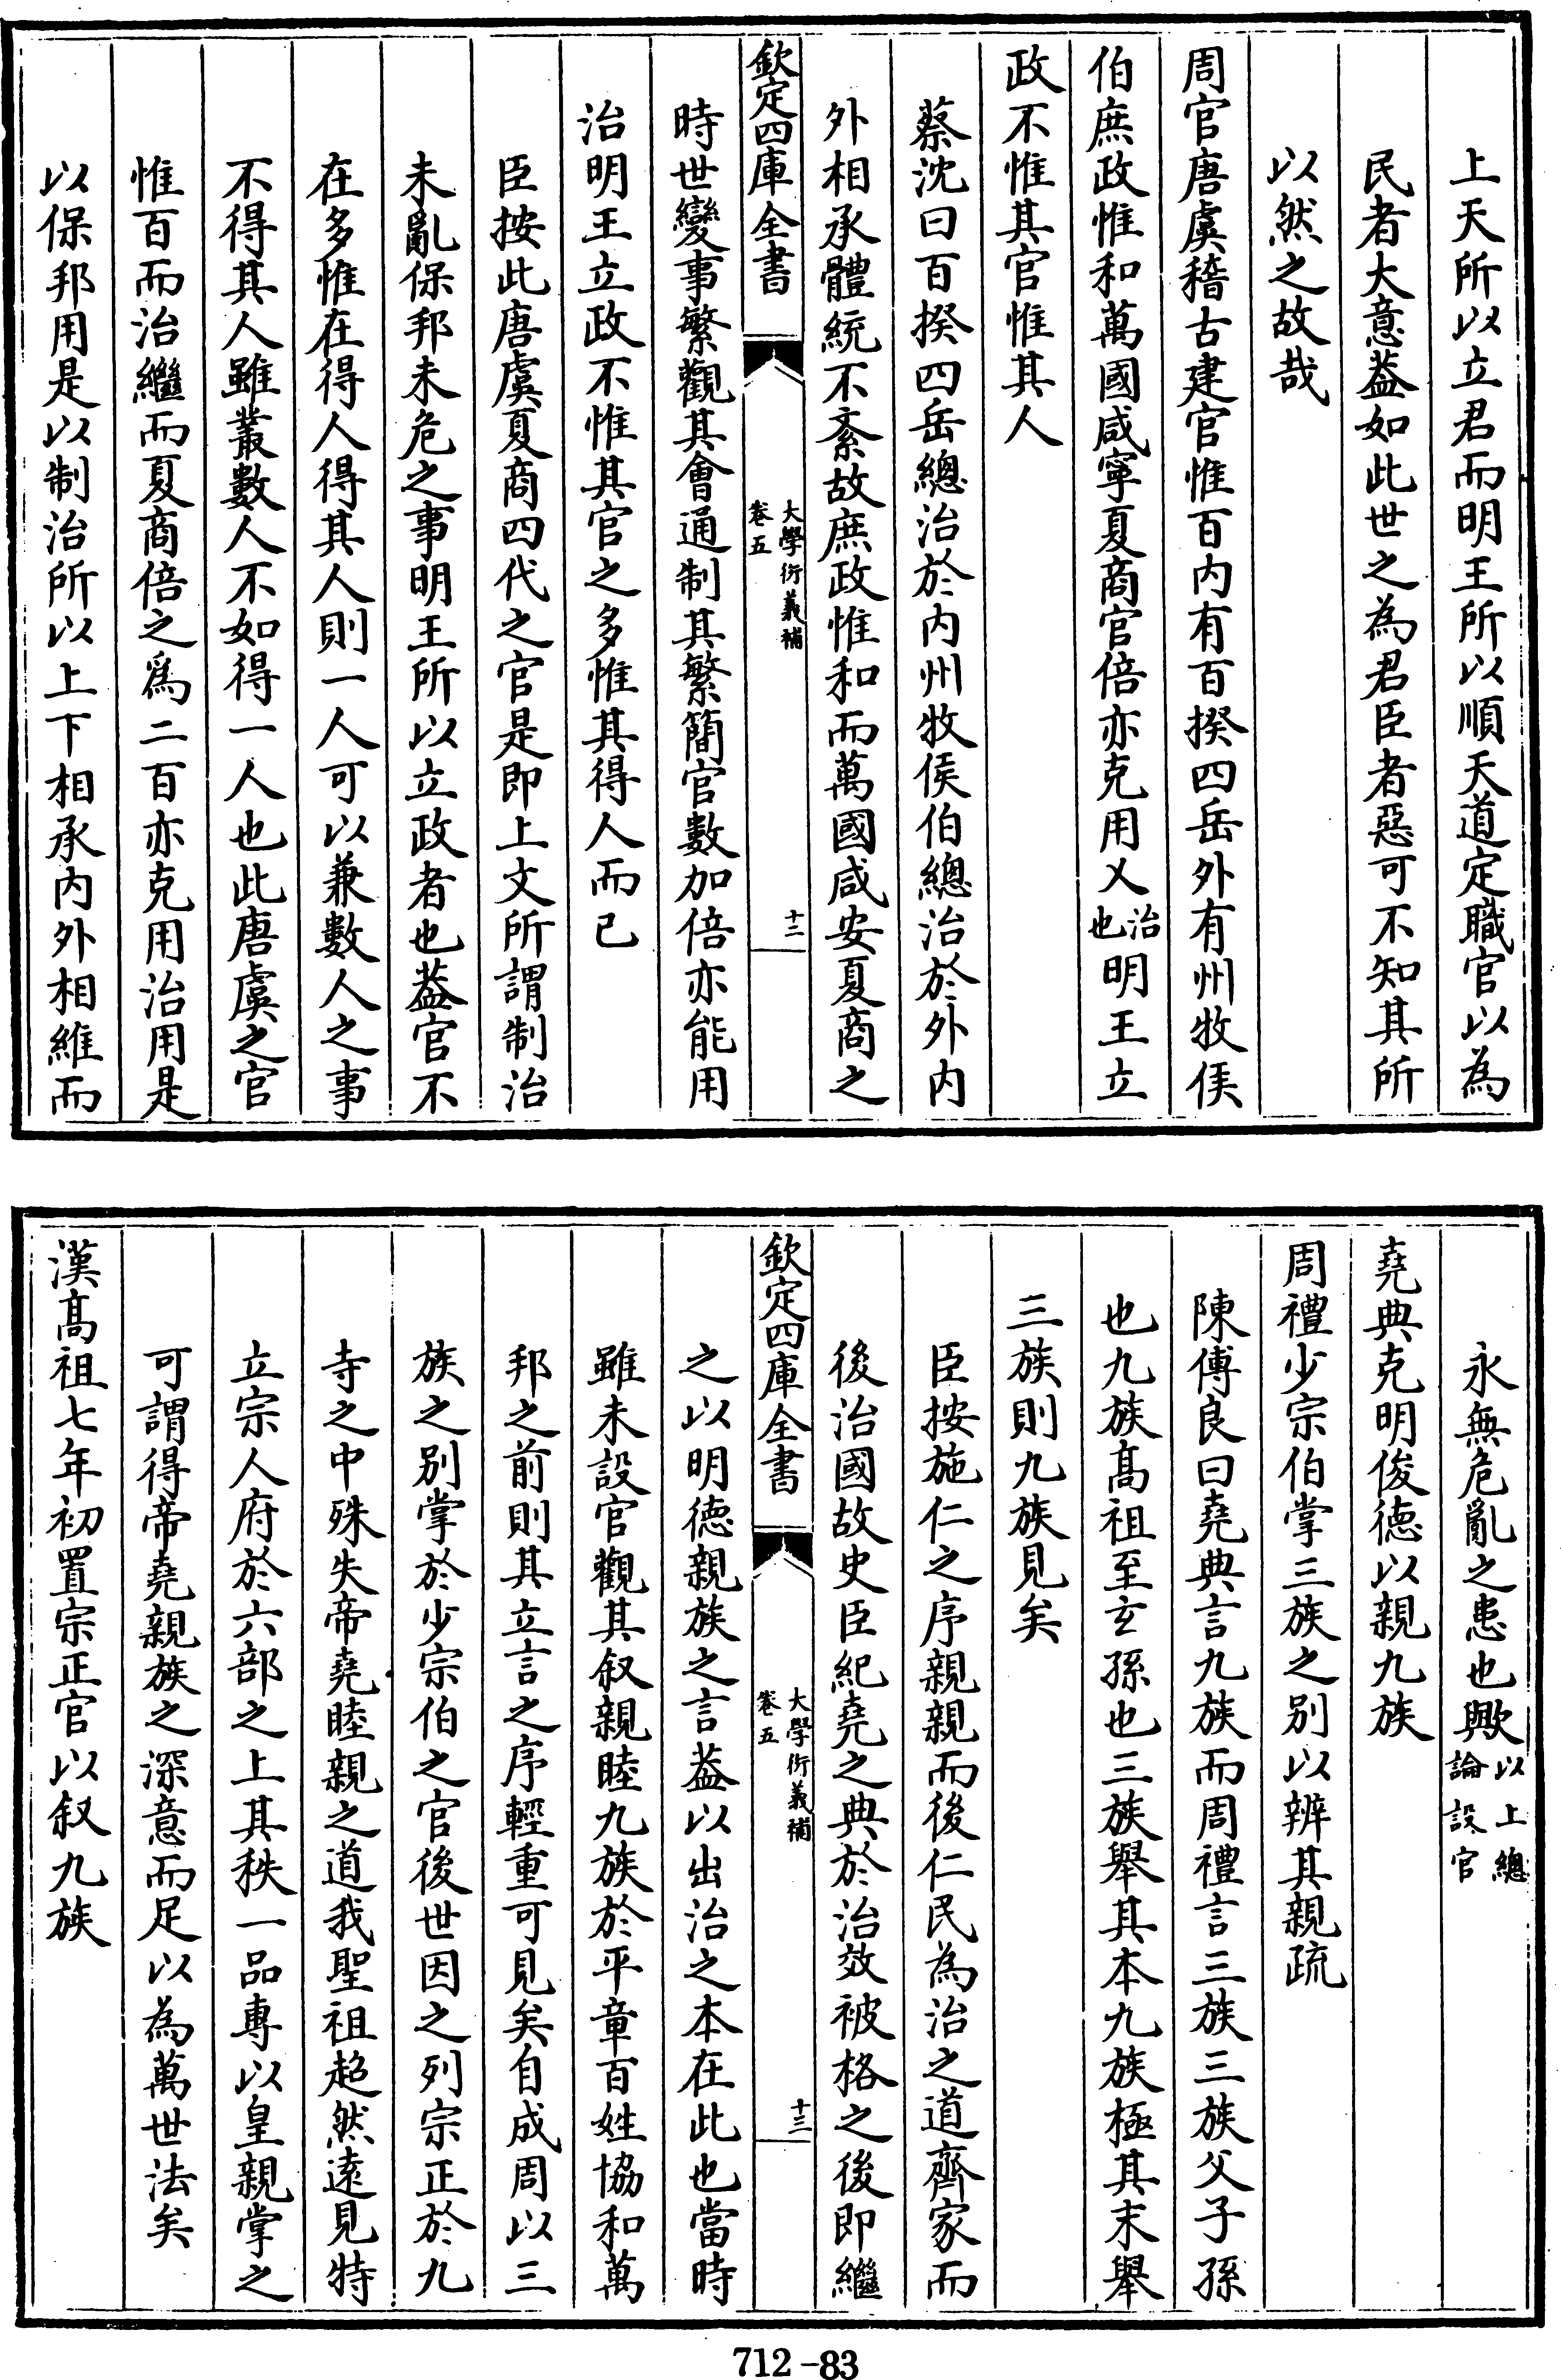 上天所以立君而明王所以順天道定職官以為
民者大意葢如此世之為君臣者惡可不知其所
以然之故哉
周官唐虞稽古建官惟百内有百揆四岳外有州牧侯
伯庶政惟和萬國咸寧夏商官倍亦克用乂治也明王立
政不惟其官惟其人
蔡沈曰百揆四岳總治於内州牧侯伯總治於外内
外相承體統不紊故庶政惟和而萬國咸安夏商之
欽定四庫全書
大學衍義補
卷五
十二
時世變事繁觀其會通制其繁簡官數加倍亦能用
治明王立政不惟其官之多惟其得人而已
臣按此唐虞夏商四代之官是即上文所謂制治
未亂保邦未危之事明王所以立政者也葢官不
在多惟在得人得其人則一人可以兼數人之事
不得其人雖叢數人不如得一人也此唐虞之官
惟百而治繼而夏商倍之爲二百亦克用治用是
以保邦用是以制治所以上下相承内外相維而
永無危亂之患也歟以上總論設官
堯典克明俊德以親九族
周禮少宗伯掌三族之别以辨其親疏
陳傅良曰堯典言九族而周禮言三族三族父子孫
也九族髙祖至玄孫也三族舉其本九族極其末舉
三族則九族見矣
臣按施仁之序親親而後仁民為治之道齊家而
後治國故史臣紀堯之典於治效被格之後即繼
欽定四庫全書
大學衍義補
卷五
十三
之以明德親族之言葢以出治之本在此也當時
雖未設官觀其叙親睦九族於平章百姓協和萬
邦之前則其立言之序輕重可見矣自成周以三
族之别掌於少宗伯之官後世因之列宗正於九
寺之中殊失帝堯睦親之道我聖祖超然逺見特
立宗人府於六部之上其秩一品專以皇親掌之
可謂得帝堯親族之深意而足以為萬世法矣
漢髙祖七年初置宗正官以叙九族
712-83